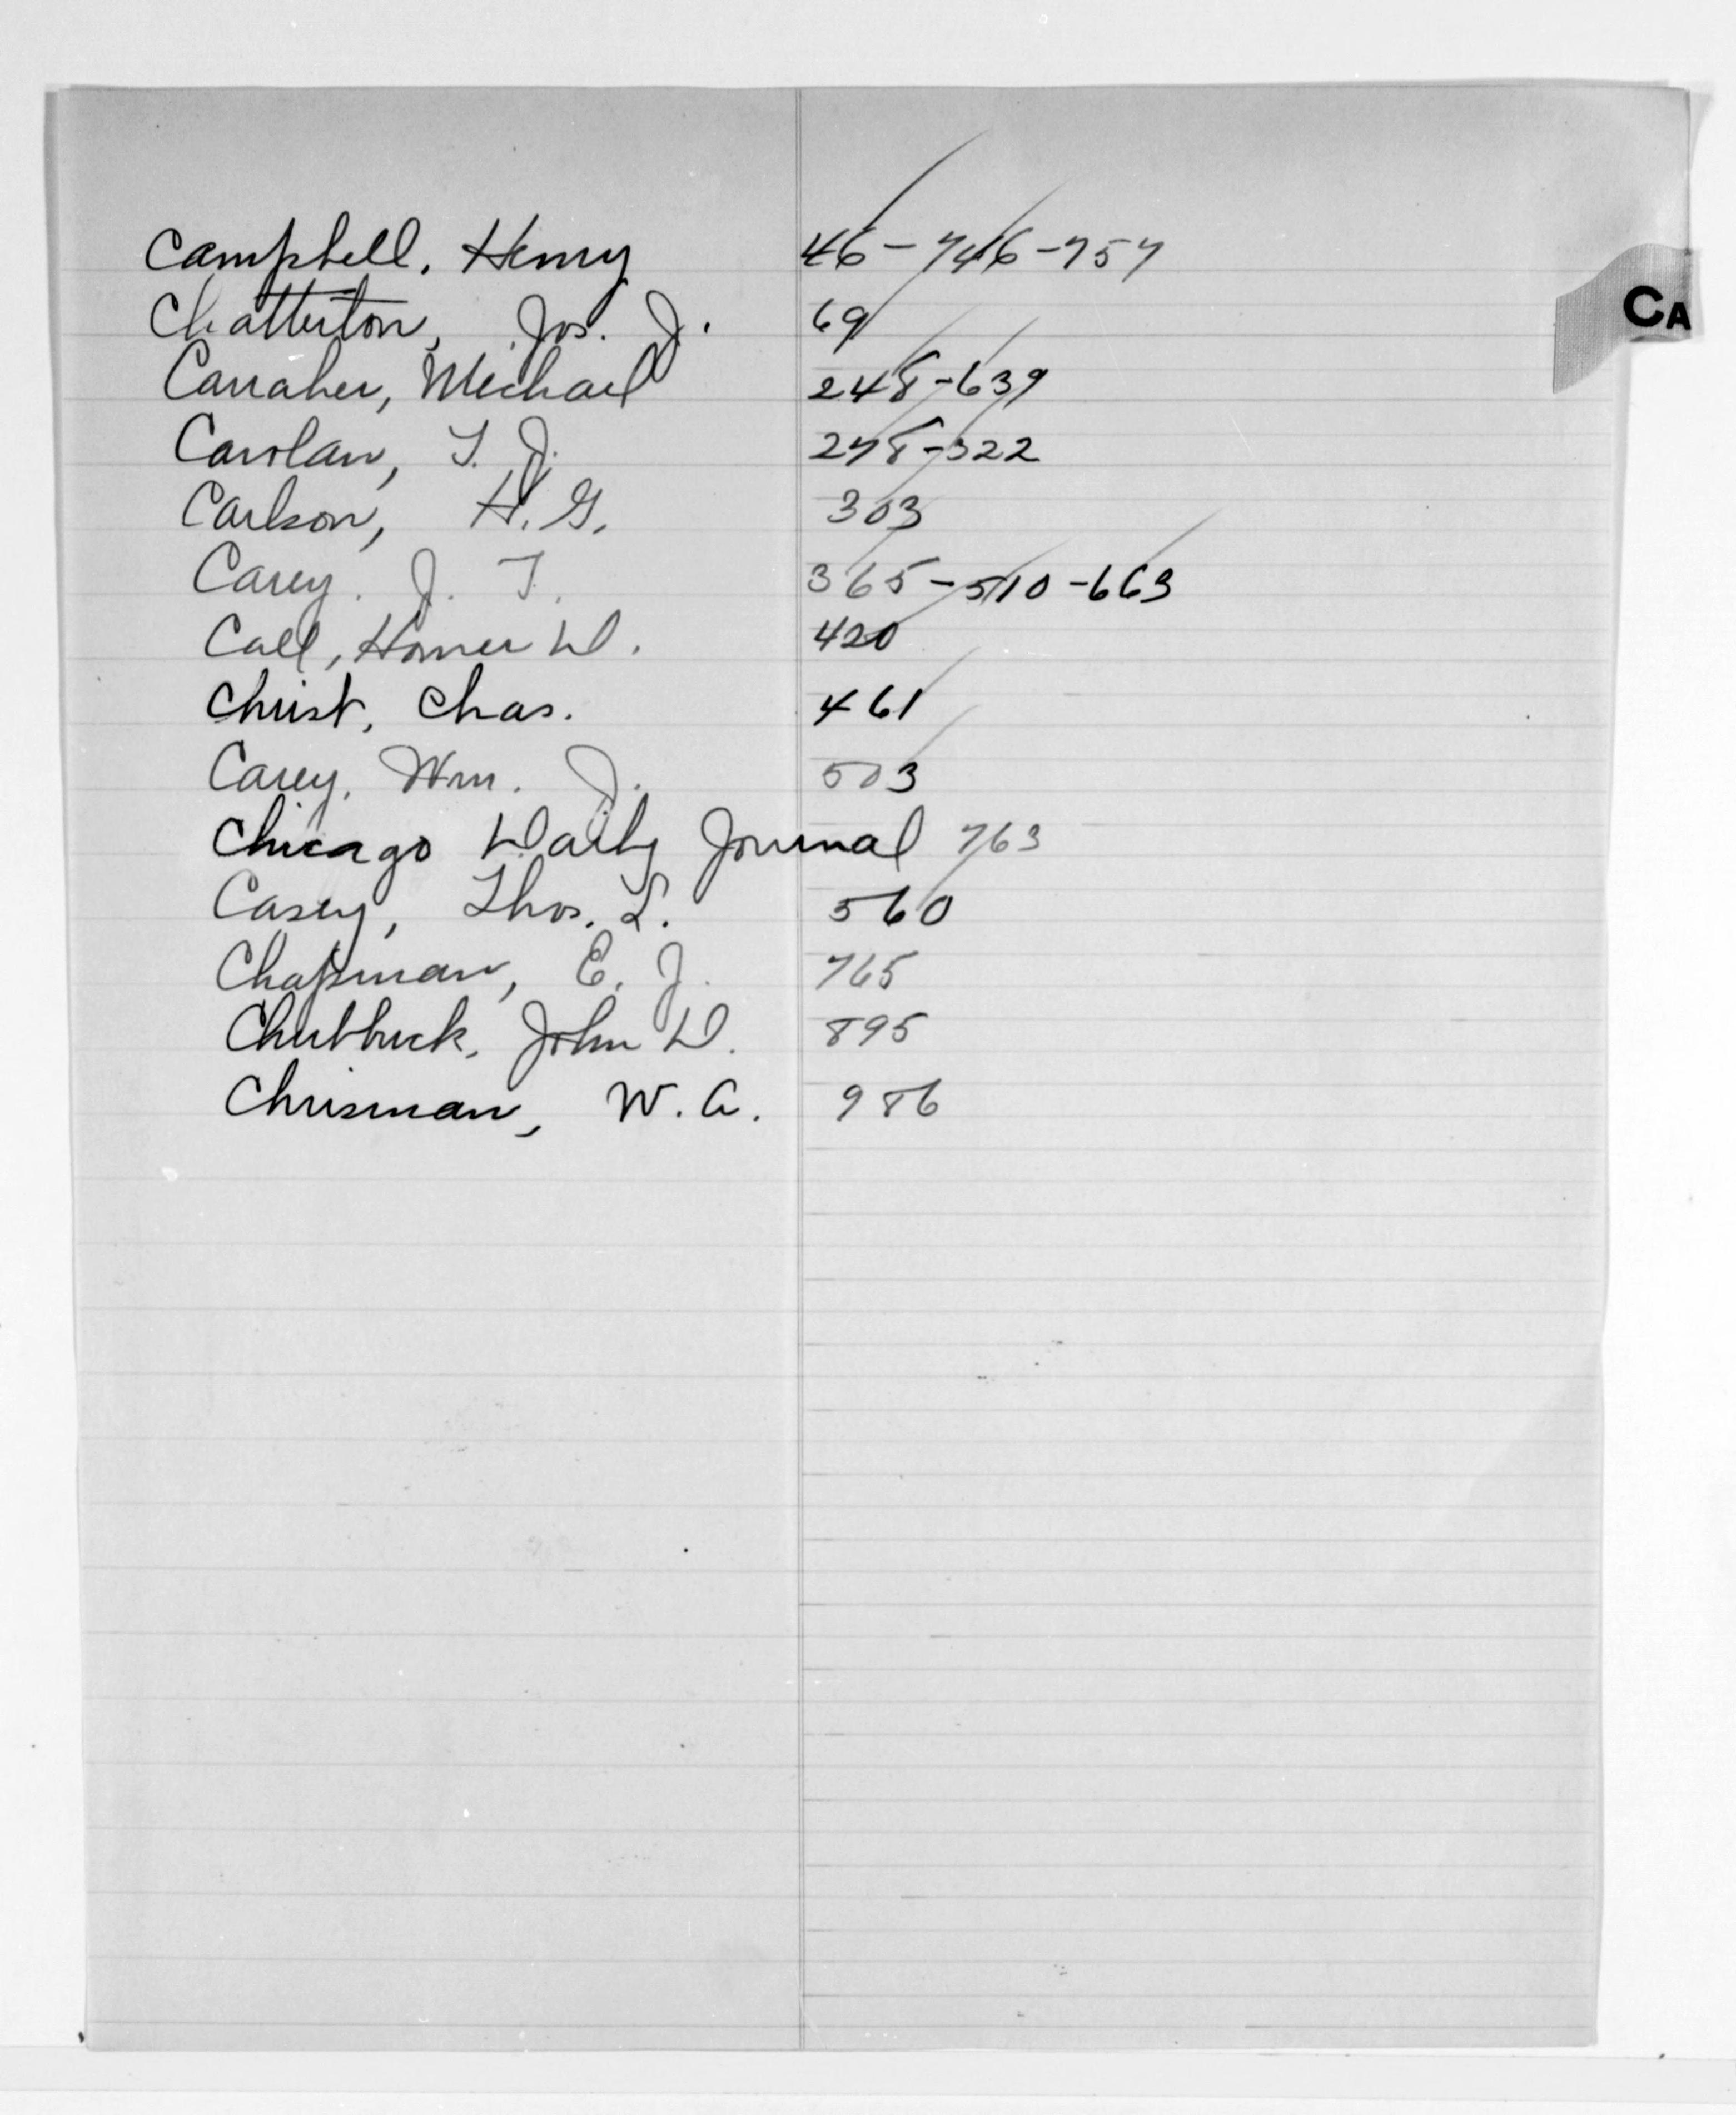 Campbell, Henry 46-746-757
CA
Chatterton, Jos. J. 69
Carraher, Michael 248-639
Carolan, T. J. 278-322
Carlson, H. G. 303
Carey. J. T. 365-510-663
Call, Homer D. 420
Christ, Chas. 461
Carey, Wm. J. 503
Chicago Daily Journal 763
Casey, Thos. L. 560
Chapman, E. J. 765
Chubbuck, John D. 895
Chrisman, W. A. 986